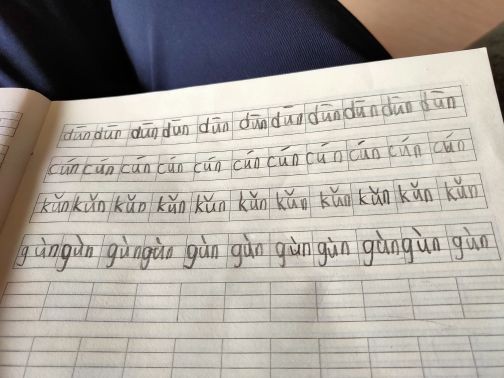 dūn dūn dūn dūn dūn dūn dūn dūn dūn dūn dūn
cún cún cún cún cún cún cún cún cún cún cún
kǔn kǔn kǔn kǔn kǔn kǔn kǔn kǔn kǔn kǔn kǔn
gùn gùn gùn gùn gùn gùn gùn gùn gùn gùn gùn